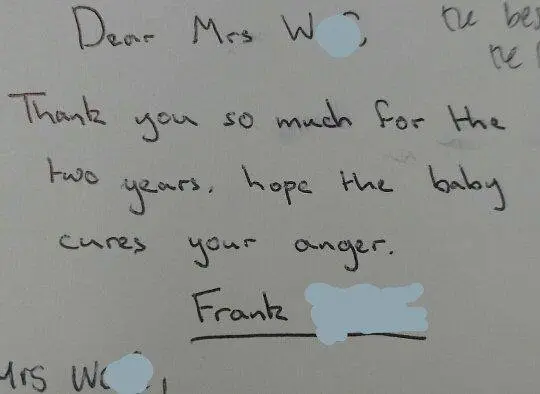 Dear Mrs W
the bes
the
Thank you so much for the
two years. hope the baby
cures your anger.
Frank
Mrs W